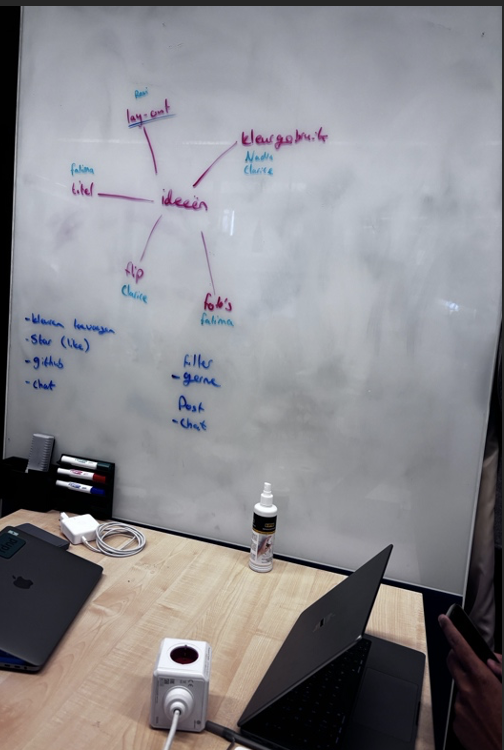 lay-out
kleurgebruik
Nadia
Clarice
fatima
titel
ideeën
flip
Clarice
foto's
fatima
- kleuren
- Ster (like)
- github
- chat
filter
- genre
Post
- Chat